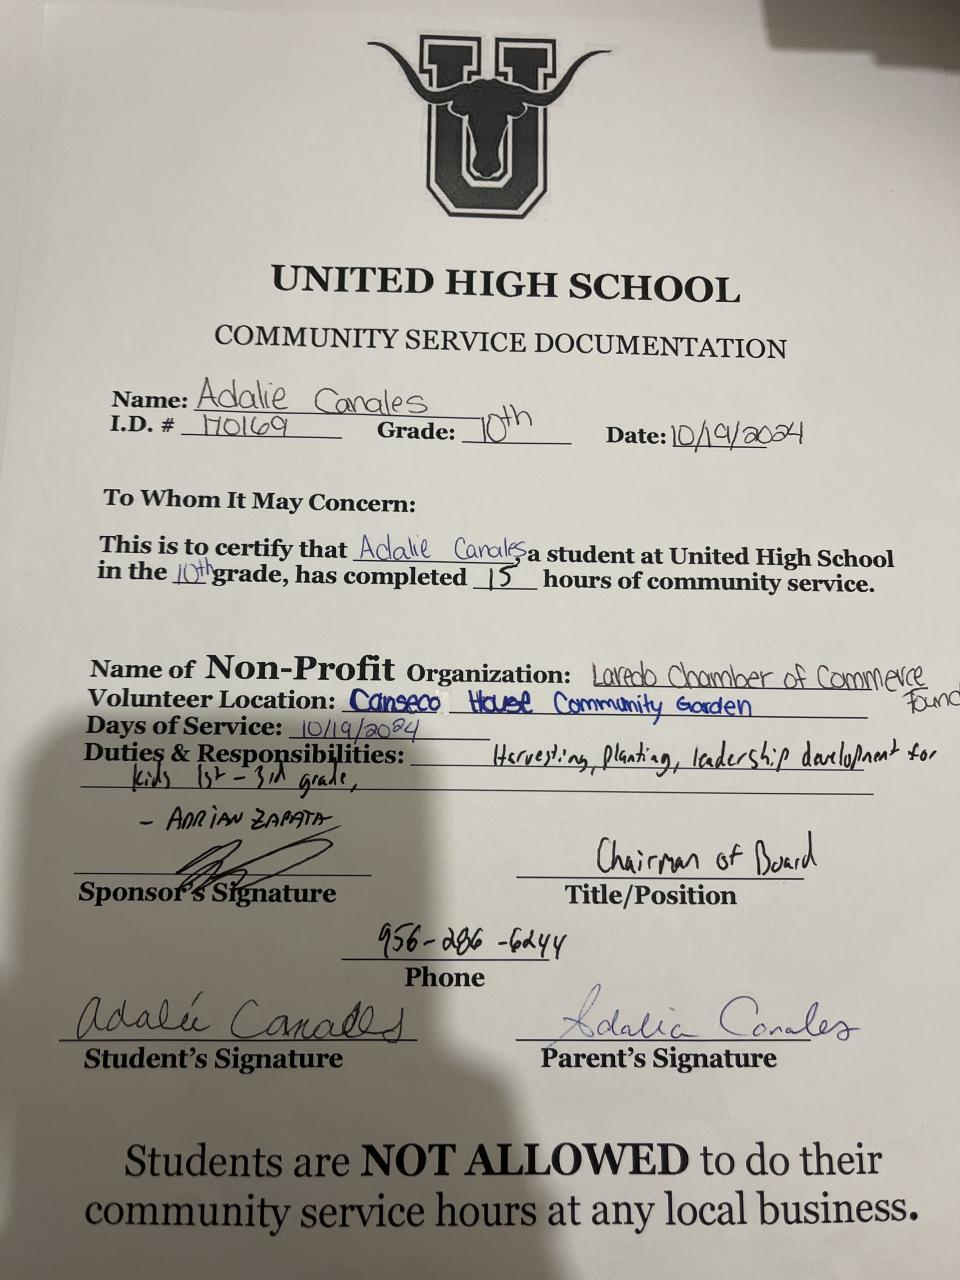 U
UNITED HIGH SCHOOL
COMMUNITY SERVICE DOCUMENTATION
Name: Adalie Canales
I.D. # 170169 Grade: 10th Date: 10/19/2024
To Whom It May Concern:
This is to certify that Adalie Canales, a student at United High School
in the 10th grade, has completed 15 hours of community service.
Name of Non-Profit Organization: Laredo Chamber of Commerce
Found
Volunteer Location: Canseco House Community Garden
Days of Service: 10/19/2024
Duties & Responsibilities: Harvesting, planting, leadership development for
kids 1st - 3rd grade,
- ADRIAN ZAPATA
Chairman of Board
Sponsor's Signature Title/Position
956-286-6244
Phone
Adalie Canales Adalia Canales
Student's Signature Parent's Signature
Students are NOT ALLOWED to do their
community service hours at any local business.